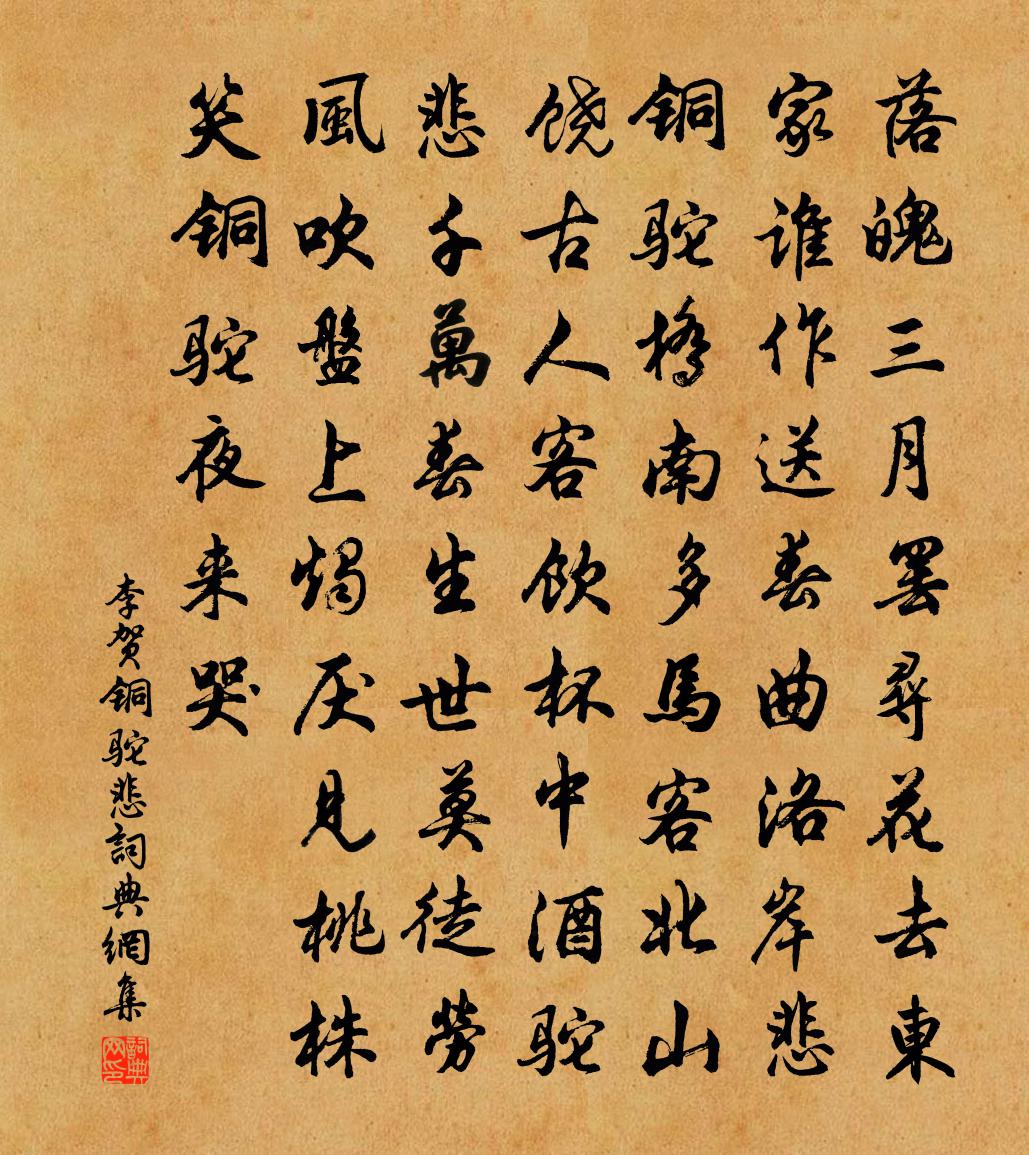 落魄三月罢尋花去東
家谁作送春曲洛岸悲
铜驼橋南多馬客北山
饶古人客饮杯中酒驼
悲千萬春生世莫徒劳
風吹盤上燭厌見桃株
笑铜驼夜来哭
李贺铜驼悲詞典網集